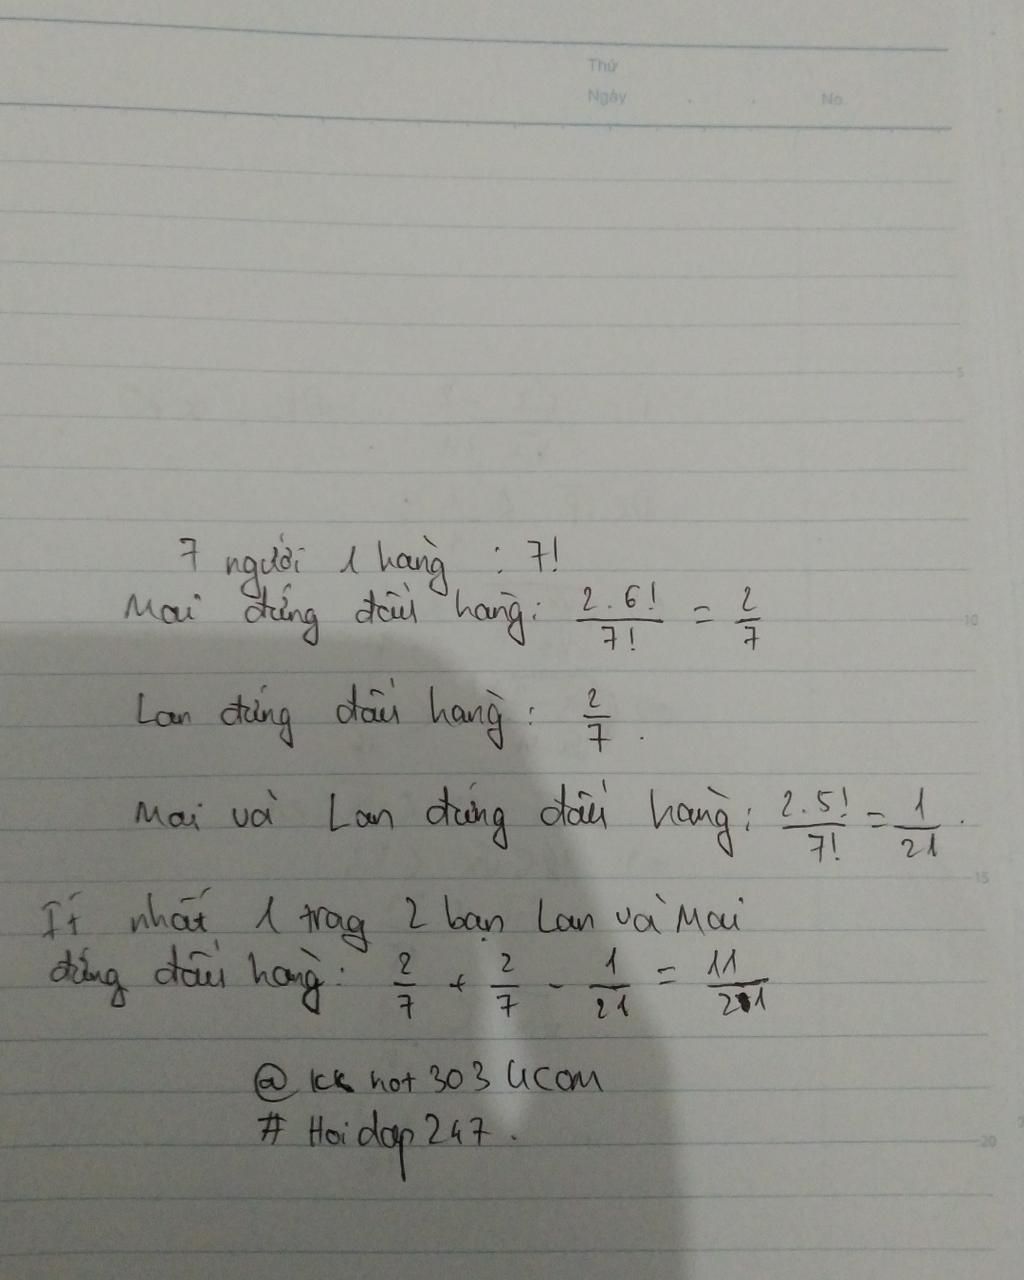 Thứ
Ngày . . No.
5
7 người 1 hàng : 7!
Mai đứng đầu hàng: 2.6!/7! = 2/7
10
Lan đứng đầu hàng: 2/7.
Mai và Lan đứng đầu hàng: 2.5!/7! = 1/21.
15
Ít nhất 1 trog 2 bạn Lan và Mai
đứng đầu hàng: 2/7 + 2/7 - 1/21 = 11/21
@ kk hot 303 Ucom
# Hoi dap 247.
20